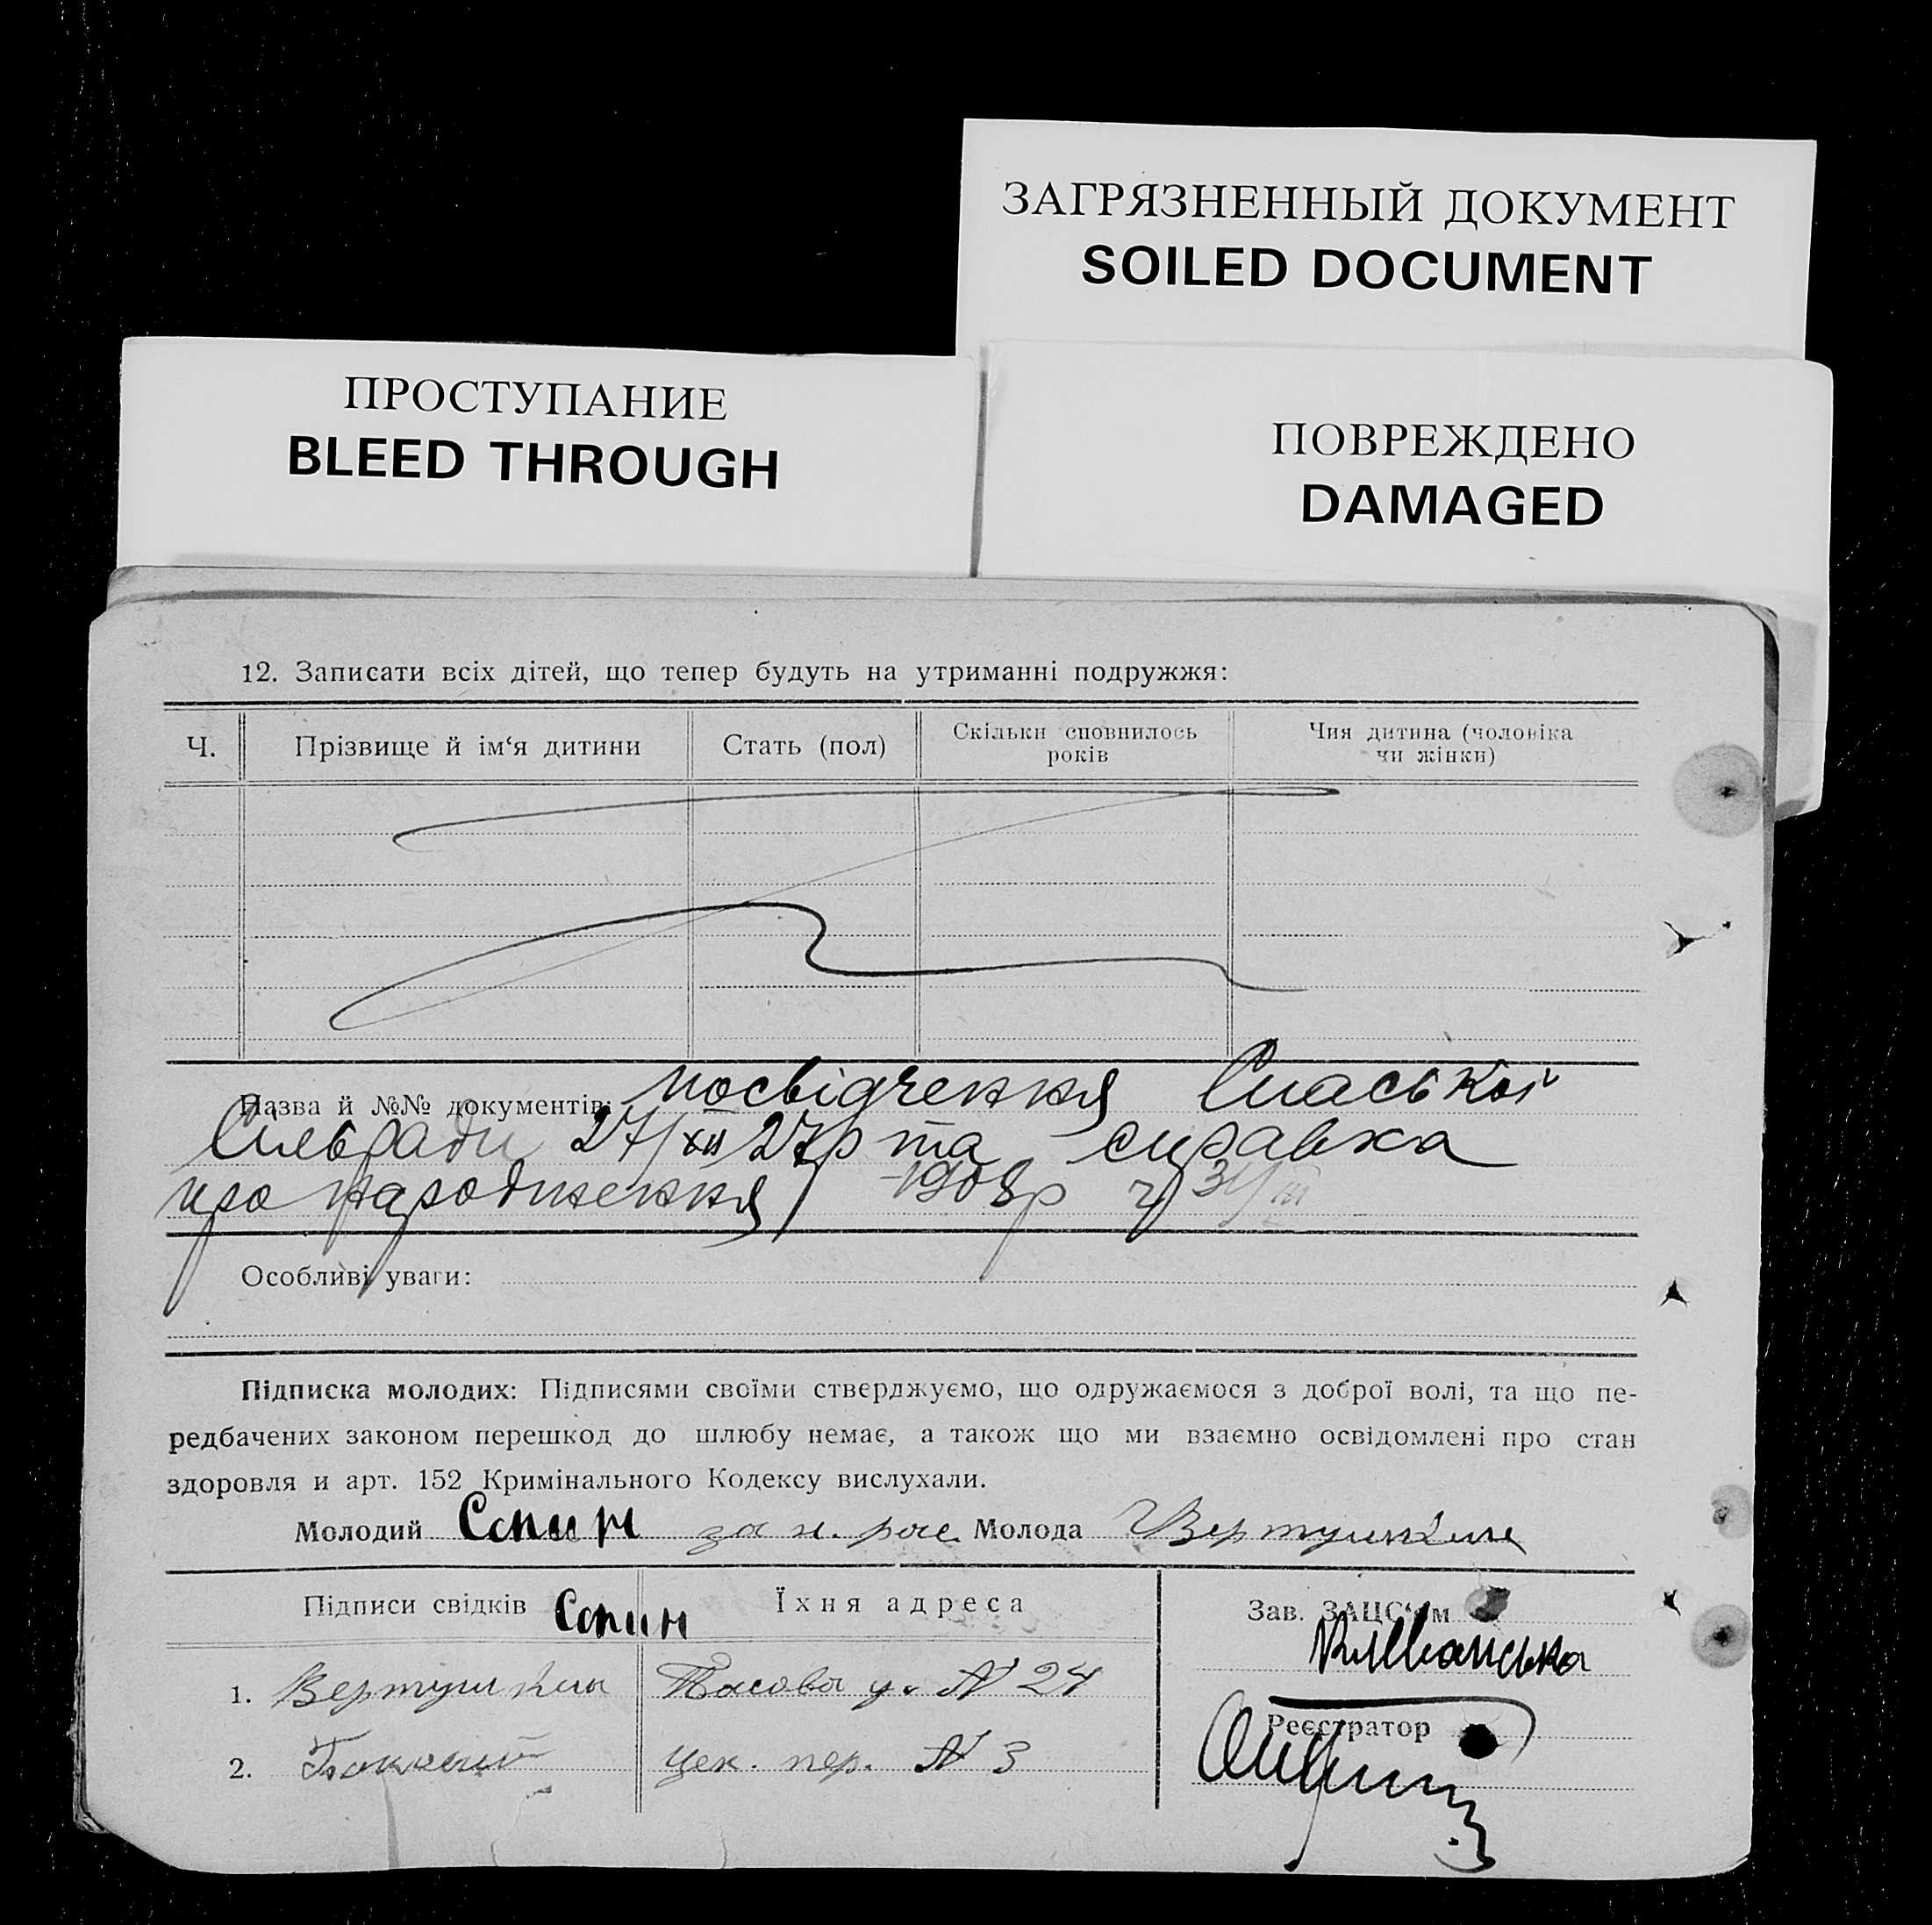 ЗАГРЯЗНЕННЫЙ ДОКУМЕНТ
SOILED DOCUMENT
ПРОСТУПАНИЕ
BLEED THROUGH
ПОВРЕЖДЕНО
DAMAGED
12. Записати всіх дітей, що тепер будуть на утриманні подружжя:
Ч.
Прізвище й ім‘я дитини
Стать (пол)
Скільки сповнилось
років
Чия дитина (чоловіка
чи жінки)
Назва й №№ документів: посвідчення Спаської
Сільради 27/XII 27р та справка
про народження 1908р
Особливі уваги:
Підписка молодих: Підписями своїми стверджуємо, що одружаємося з доброї волі, та що пе-
редбачених законом перешкод до шлюбу немає, а також що ми взаємно освідомлені про стан
здоровля и арт. 152 Кримінального Кодексу вислухали.
Молодий Сопин Молода Вертушкина
Підписи свідків Сопин
Їхня адреса
Зав. ЗАЦС‘ом
1. Вертушкина
№ 24
2.
пер. № 3
Реєстратор